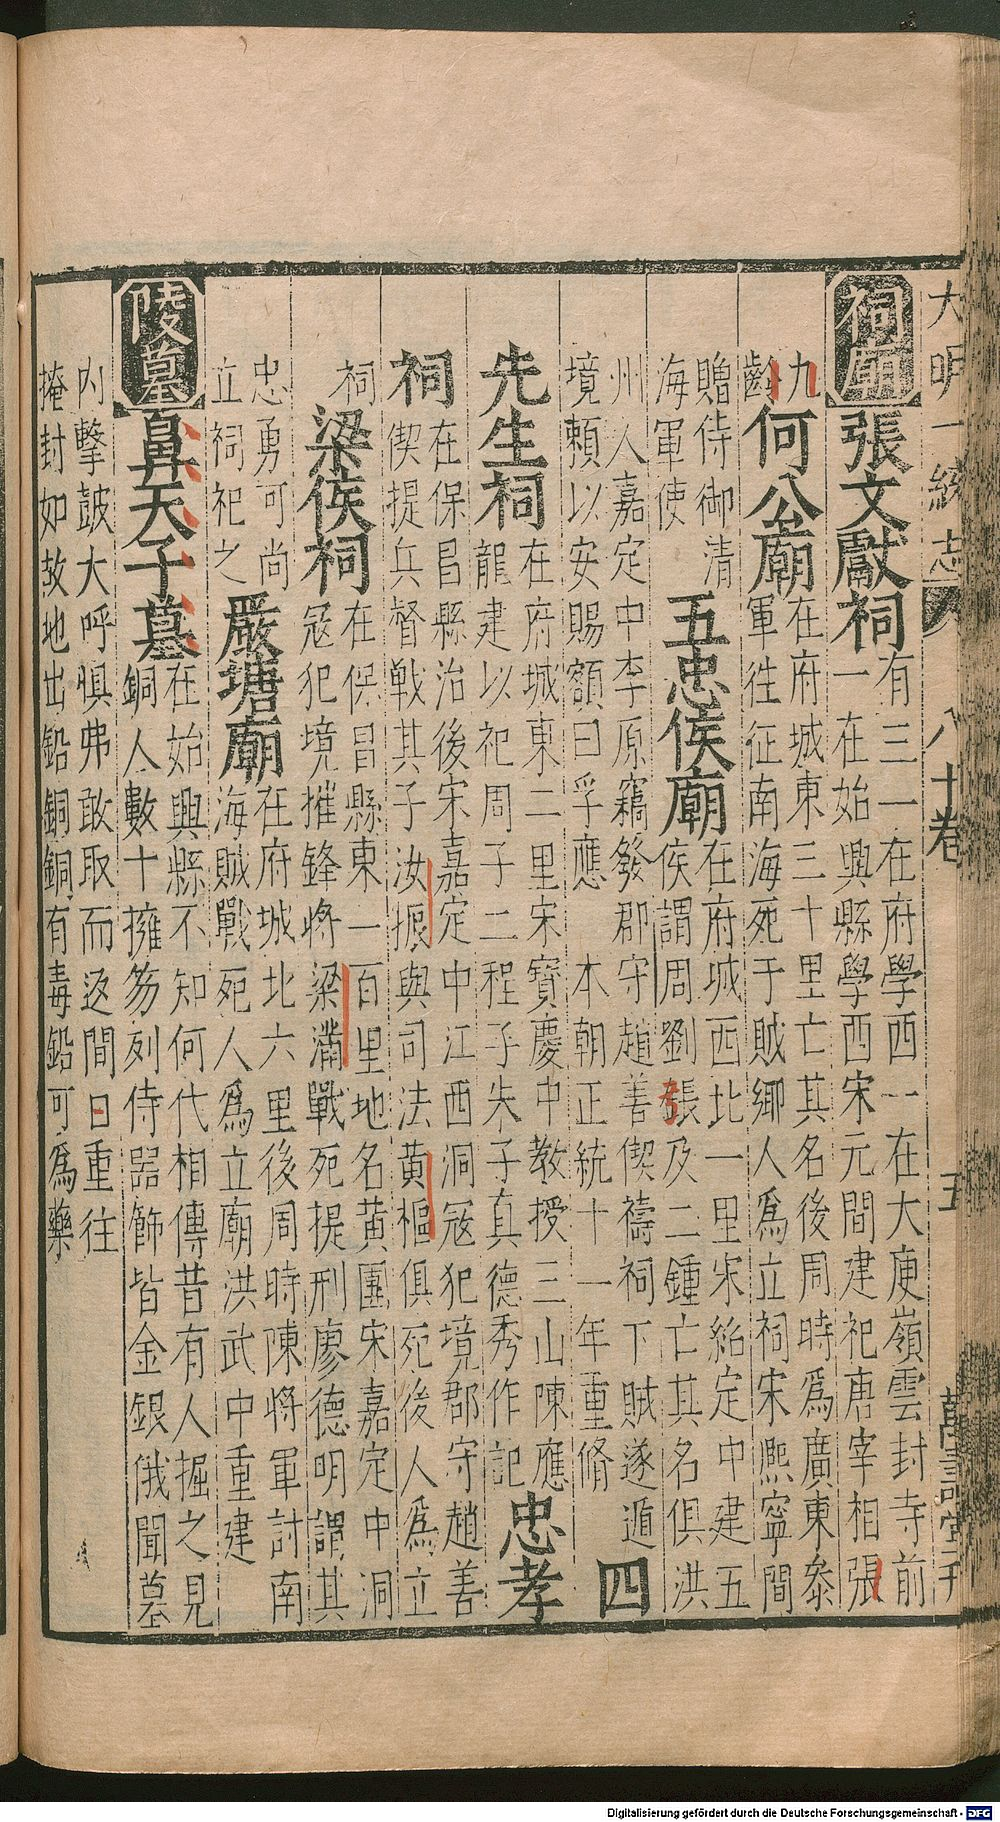 大明一統志 八十卷 五 萬壽堂刊
祠廟 張文獻祠
有三一在府學西一在大庾嶺雲封寺前
一在始興縣學西宋元間建祀唐宰相張
九
齡
何公廟
在府城東三十里亡其名後周時爲廣東叅
軍徃征南海死于賊鄉人爲立祠宋熈寧間
贈侍御清
海軍使
五忠侯廟
在府城西北一里宋紹定中建五
侯謂周劉張及二鍾亡其名俱洪
州人嘉定中李原竊發郡守趙善偰禱祠下賊遂遁
境頼以安賜額曰孚應 本朝正統十一年重脩
四
先生祠
在府城東二里宋寶慶中教授三山陳應
龍建以祀周子二程子朱子真德秀作記
忠孝
祠
在保昌縣治後宋嘉定中江西洞冦犯境郡守趙善
偰提兵督戰其子汝振與司法黄樞俱死後人爲立
祠
梁侯祠
在保昌縣東一百里地名黄團宋嘉定中洞
冦犯境摧鋒將梁满戰死提刑廖德明謂其
忠勇可尚
立祠祀之
嚴塘廟
在府城北六里後周時陳將軍討南
海賊戰死人爲立廟洪武中重建
陵墓 鼻天子墓
在始興縣不知何代相傳昔有人掘之見
銅人數十擁笏列侍器飾皆金銀俄聞墓
内擊皷大呼惧弗敢取而返間日重往
掩封如故地出鉛銅銅有毒鉛可爲藥
Digitalisierung gefördert durch die Deutsche Forschungsgemeinschaft - DFG